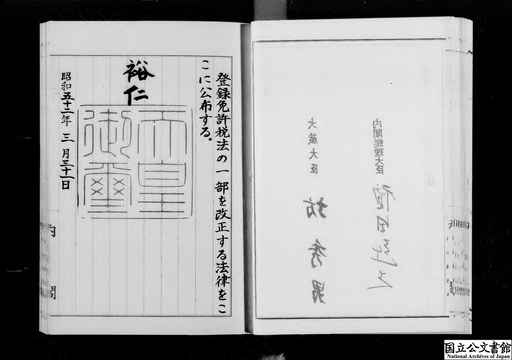 登録免許税法の一部を改正する法律をこ
こに公布する。
裕仁
天皇
御璽
昭和五十二年三月三十一日
内閣
内閣総理大臣
大蔵大臣
坊秀男
国立公文書館
National Archives of Japan